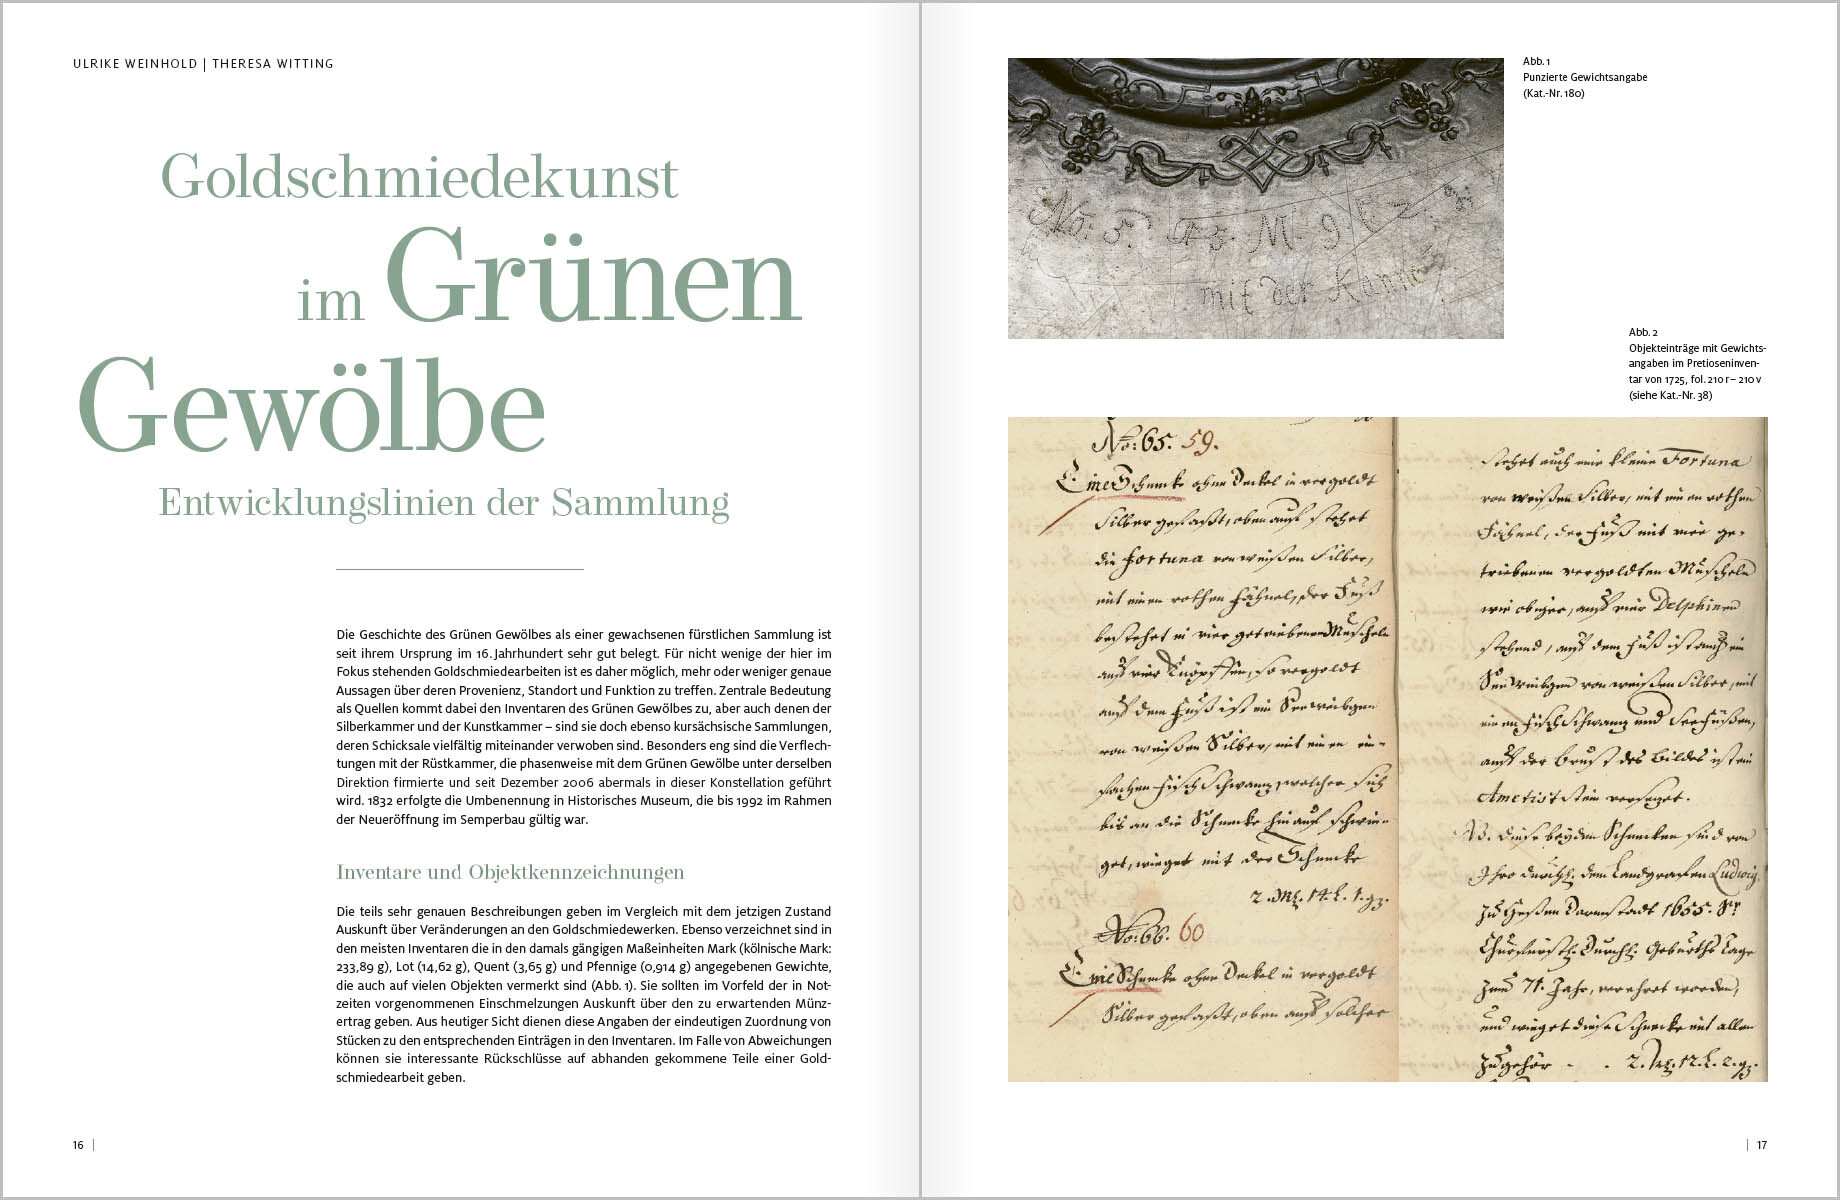 ULRIKE WEINHOLD | THERESA WITTING
Goldschmiedekunst
im Grünen
Gewölbe
Entwicklungslinien der Sammlung
Die Geschichte des Grünen Gewölbes als einer gewachsenen fürstlichen Sammlung ist
seit ihrem Ursprung im 16. Jahrhundert sehr gut belegt. Für nicht wenige der hier im
Fokus stehenden Goldschmiedearbeiten ist es daher möglich, mehr oder weniger genaue
Aussagen über deren Provenienz, Standort und Funktion zu treffen. Zentrale Bedeutung
als Quellen kommt dabei den Inventaren des Grünen Gewölbes zu, aber auch denen der
Silberkammer und der Kunstkammer – sind sie doch ebenso kursächsische Sammlungen,
deren Schicksale vielfältig miteinander verwoben sind. Besonders eng sind die Verflech-
tungen mit der Rüstkammer, die phasenweise mit dem Grünen Gewölbe unter derselben
Direktion firmierte und seit Dezember 2006 abermals in dieser Konstellation geführt
wird. 1832 erfolgte die Umbenennung in Historisches Museum, die bis 1992 im Rahmen
der Neueröffnung im Semperbau gültig war.
Inventare und Objektkennzeichnungen
Die teils sehr genauen Beschreibungen geben im Vergleich mit dem jetzigen Zustand
Auskunft über Veränderungen an den Goldschmiedewerken. Ebenso verzeichnet sind in
den meisten Inventaren die in den damals gängigen Maßeinheiten Mark (kölnische Mark:
233,89 g), Lot (14,62 g), Quent (3,65 g) und Pfennige (0,914 g) angegebenen Gewichte,
die auch auf vielen Objekten vermerkt sind (Abb. 1). Sie sollten im Vorfeld der in Not-
zeiten vorgenommenen Einschmelzungen Auskunft über den zu erwartenden Münz-
ertrag geben. Aus heutiger Sicht dienen diese Angaben der eindeutigen Zuordnung von
Stücken zu den entsprechenden Einträgen in den Inventaren. Im Falle von Abweichungen
können sie interessante Rückschlüsse auf abhanden gekommene Teile einer Gold-
schmiedearbeit geben.
16 |
Abb. 1
Punzierte Gewichtsangabe
(Kat.-Nr. 180)
No: 5. M 9
mit der Kanne
Abb. 2
Objekteinträge mit Gewichts-
angaben im Pretioseninven-
tar von 1725, fol. 210 r – 210 v
(siehe Kat.-Nr. 38)
No: 65. 59.
Eine Schnecke ohne Deckel in vergoldt
Silber gefaßt, oben auf stehet
die Fortuna von weißen Silber,
mit einen rothen Fähnel, der Fuß
bestehet in vier getriebenen Muscheln
auf vier Knöpffen, so vergoldt
auf dem Fuß ist ein Seeweibgen
von weißen Silber, mit einen ein-
fachen Fischschwanz, welcher sich
bis an die Schnecke hinauf schwin-
get, wieget mit der Schnecke
2. Mk. 14. L. 1. q.
No: 66. 60
Eine Schnecke ohne Deckel in vergoldt
Silber gefaßt, oben auf solcher
stehet auch eine kleine Fortuna
von weißen Silber, mit einen rothen
Fähnel, der Fuß mit vier ge-
triebenen vergoldten Muscheln
wie obiger, auf vier Delphinen
stehend, auf dem Fuß ist auch ein
See Weibgen von weißen Silber, mit
einen Fisch Schwanz und Seefüßen,
auf der Brust des Bildes ist ein
Ametist Stein versezet.
NB. diese beyden Schnecken sind von
Ihro durchl. dem Landgrafen Ludwig
zu Heßen Darmstadt 1655. Sr
Churfürstl. Durchl. Geburths Tage
zum 71. Jahr, verehret worden,
und wieget diese Schnecke mit allen
Zugehör - . 2. Mk. 12. L. 2. q.
| 17